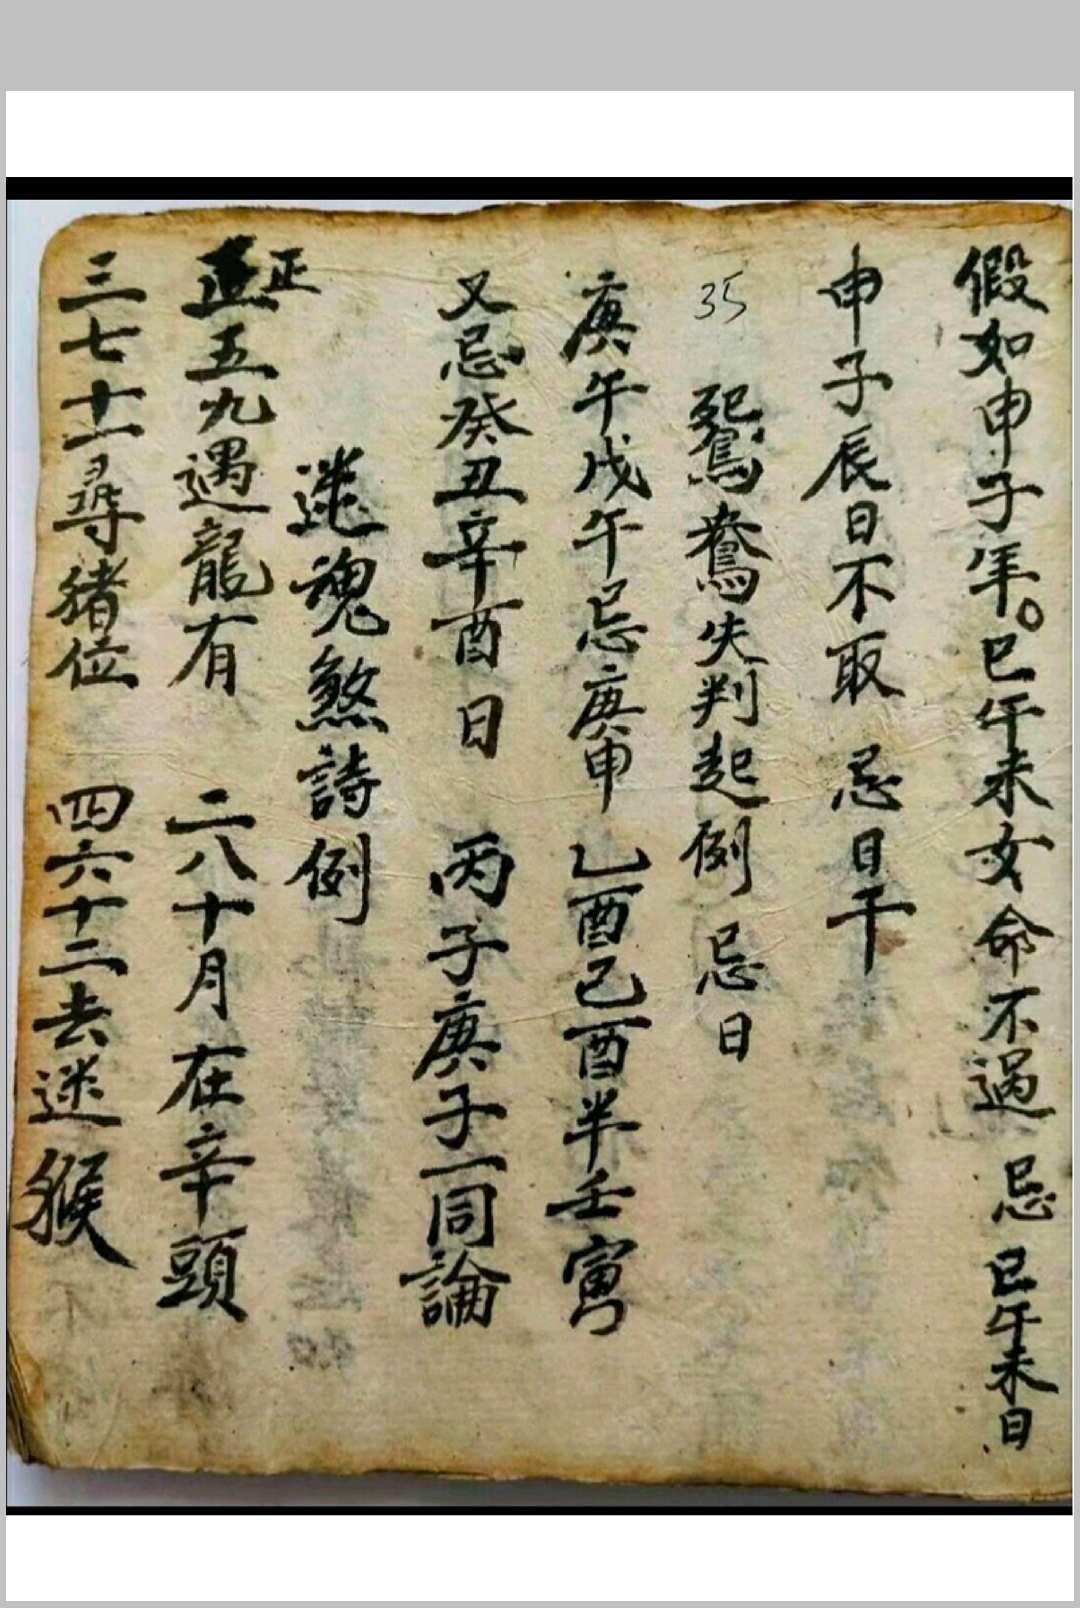 假如申子年。巳午未女命不過 忌 巳午未日
申子辰日不取 忌日干
35 鴛鴦失判起例 忌日
庚午戊午忌庚申 乙酉己酉半壬寅
又忌癸丑辛酉日 丙子庚子一同論
迷魂煞詩例
正五九遇龍有 二八十月在辛頭
三七十一尋猪位 四六十二去迷猴